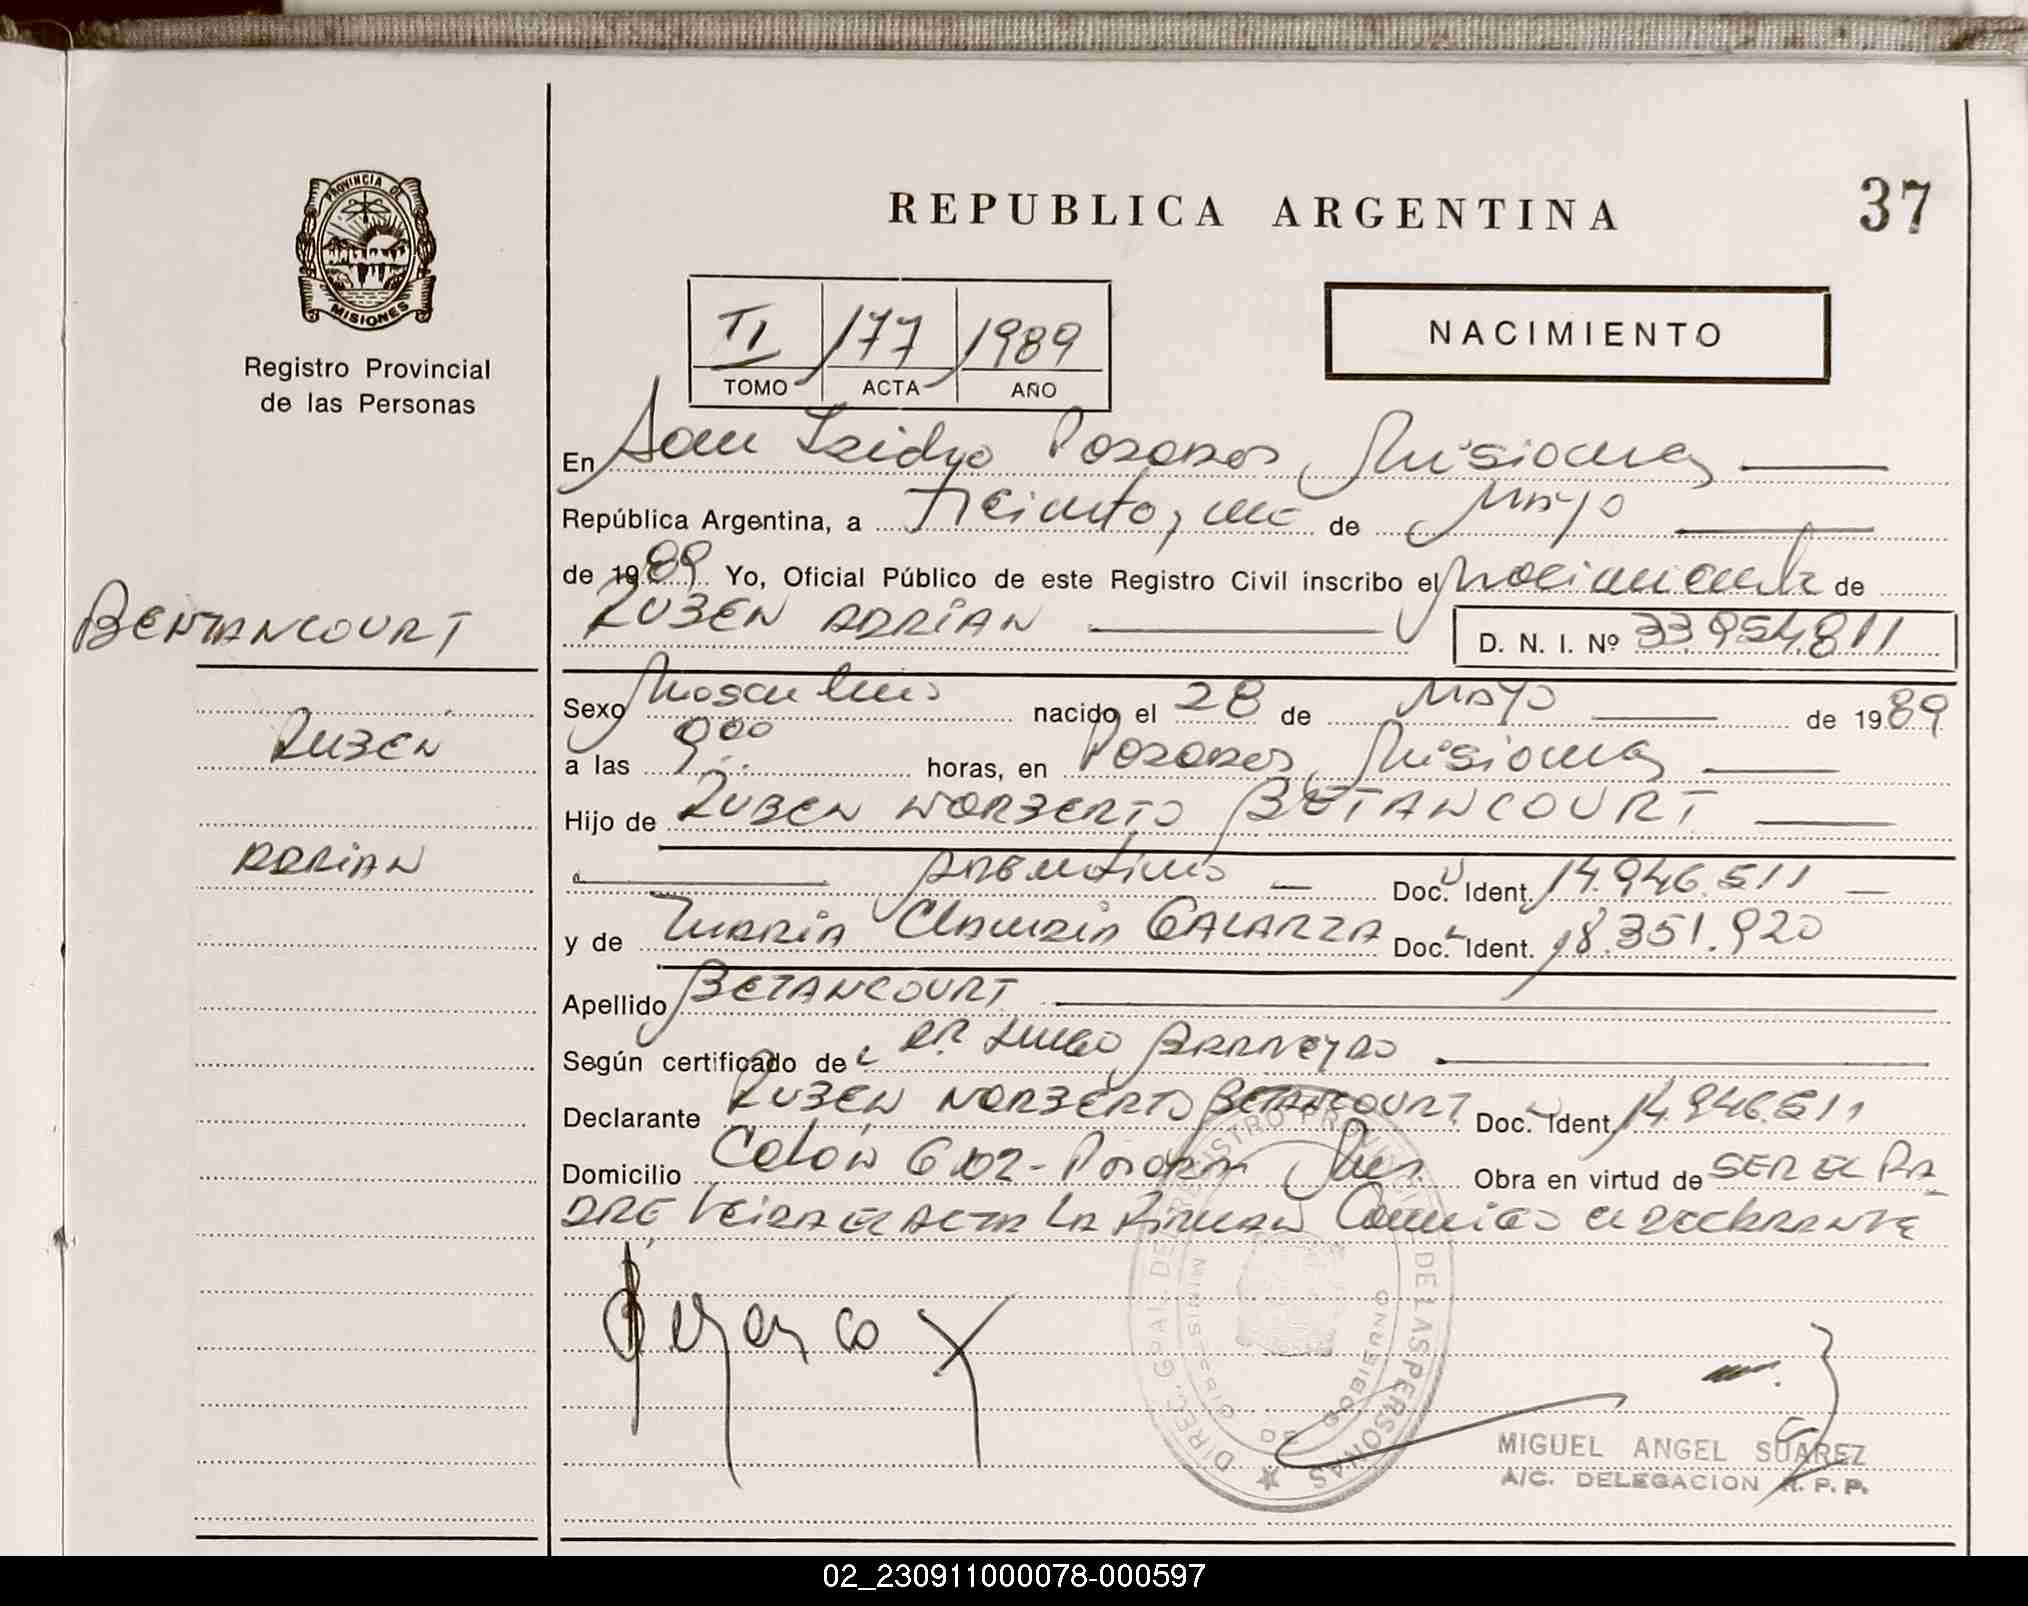 PROVINCIA DE
MISIONES
Registro Provincial
de las Personas
BENTANCOURT
RUBEN
ADRIAN
REPUBLICA ARGENTINA
37
TI / 177 / 1989
TOMO ACTA AÑO
NACIMIENTO
En San Isidro Posadas, Misiones
República Argentina, a treinta y uno de Mayo
de 1989 Yo, Oficial Público de este Registro Civil inscribo el nacimiento de
RUBEN ADRIAN
D. N. I. Nº 33.954.811
Sexo Masculino nacido el 28 de Mayo de 1989
a las 9.00 horas, en Posadas, Misiones
Hijo de RUBEN NORBERTO BETANCOURT
argentino Doc. Ident. 14.946.511
y de Maria Claudia GALARZA Doc. Ident. 18.351.920
Apellido BETANCOURT
Según certificado de Dr. BARREYRO
Declarante RUBEN NORBERTO BETANCOURT Doc. Ident. 14.946.511
Domicilio Colón Posadas Mnes. Obra en virtud de SER EL PA
DRE Leida el acta la firman conmigo el declarante
DIREC. GRAL. DEL REGISTRO PROVINCIAL DE LAS PERSONAS
MINISTERIO DE GOBIERNO
MIGUEL ANGEL SUAREZ
A/C. DELEGACION R. P. P.
02_230911000078-000597